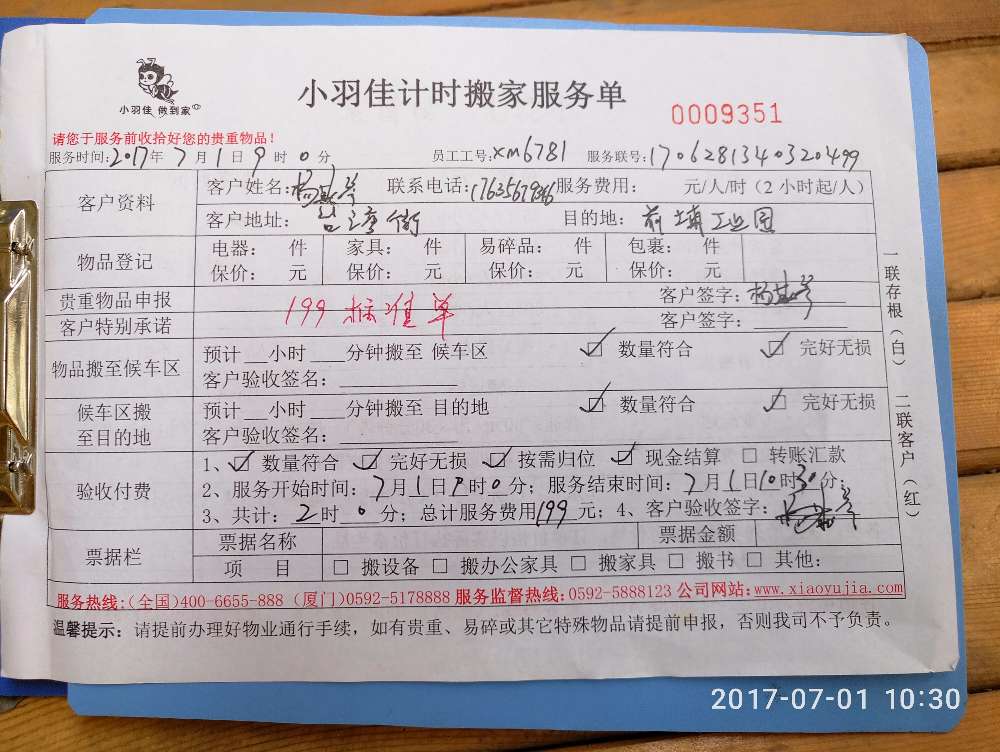 小羽佳 做到家
小羽佳计时搬家服务单
0009351
请您于服务前收拾好您的贵重物品！
服务时间：2017年7月1日9时0分 员工工号：XM6781 服务联号：1706281340320499
客户资料 客户姓名： 联系电话： 服务费用： 元/人/时（2小时起/人）
客户地址： 街 目的地：前埔工业园
物品登记 电器： 件 家具： 件 易碎品： 件 包裹： 件
保价： 元 保价： 元 保价： 元 保价： 元
贵重物品申报 客户签字：
199标准单
客户特别承诺 客户签字：
物品搬至候车区 预计__小时___分钟搬至 候车区 ☑ 数量符合 ☑ 完好无损
客户验收签名：
候车区搬至目的地 预计__小时___分钟搬至 目的地 ☑ 数量符合 ☑ 完好无损
客户验收签名：
验收付费 1、☑ 数量符合 ☑ 完好无损 ☑ 按需归位 ☑ 现金结算 □ 转账汇款
2、服务开始时间：7月1日 时0分；服务结束时间：7月1日10时30分；
3、共计：2时0分；总计服务费用199元；4、客户验收签字：
票据栏 票据名称 票据金额
项 目 □ 搬设备 □ 搬办公家具 □ 搬家具 □ 搬书 □ 其他：
服务热线：(全国)400-6655-888 (厦门)0592-5178888 服务监督热线：0592-5888123 公司网站：www.xiaoyujia.com
温馨提示：请提前办理好物业通行手续，如有贵重、易碎或其它特殊物品请提前申报，否则我司不予负责。
一联存根（白） 二联客户（红）
2017-07-01 10:30